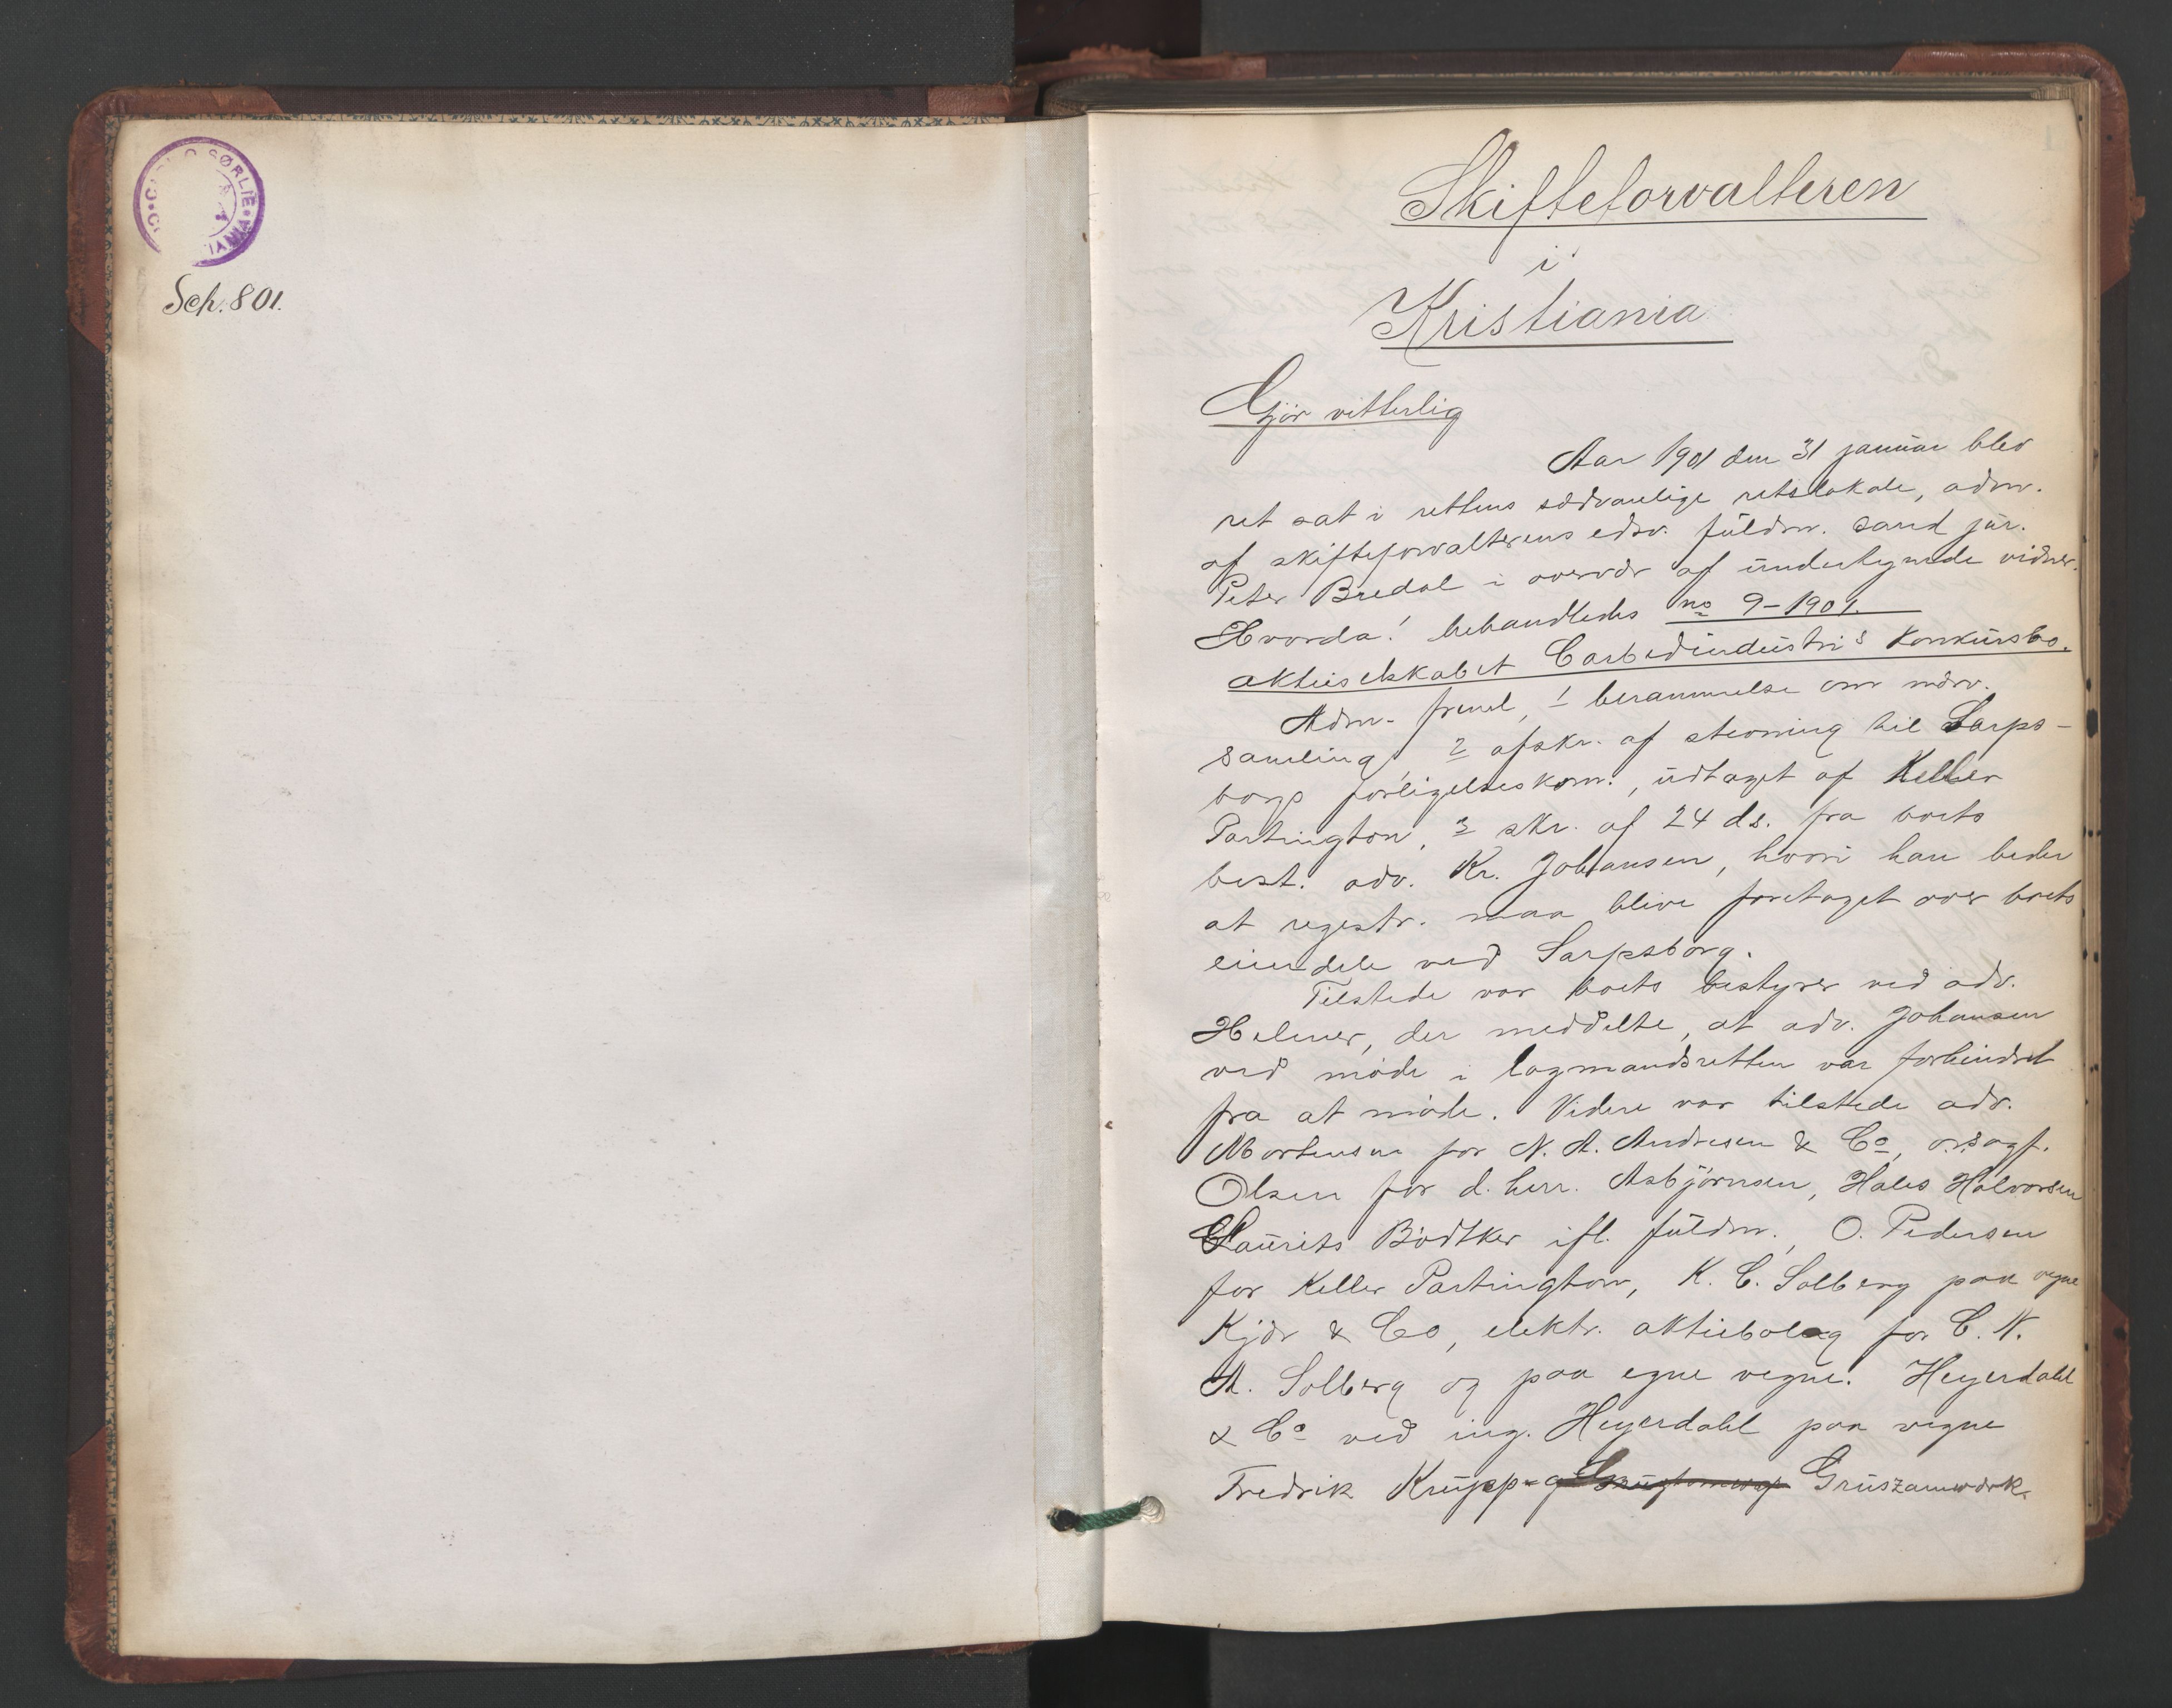 SØRLIE
Sch. 801.
Skifteforvalteren
i
Kristiania
Gjör vitterlig
Aar 1901 den 31 januar blev
ret sat i rettens sædvanlige retslokale, adm.
af skifteforvalterens edsv. fuldm. cand jur.
Peter Bredal i overvær af undertegnede vidner.
Hvorda! behandledes no 9-1901.
aktieselskabet Carbidindustri's konkursbo.
Adm. freml, 1 berammelse om
samling, 2 afskr. af stevning til Sarps-
borg forligelseskom., udtaget af Kellner
Partington, 3 skr. af 24 ds. fra boets
best. adv. Kr. Johansen, hvori han beder
at registr. maa blive foretaget over boets
eiendele ved Sarpsborg.
Tilstede var boets bestyrer ved adv.
Helmer, der meddelte, at adv. Johansen
ved möde i lagmandsretten var forhindret
fra at möde. Videre var tilstede adv.
Mortensen for N. A. Andresen & Co, o.r.sagf.
Olsen for d. herr. Asbjörnsen, Hales Halvorsen
Laurits Bödtker ifl. fuldm., O. Pedersen
for Keller Partington, K. C. Solberg paa vegne
Kjær & Co, elektr. aktiebolag for C. N.
A. Solberg og paa egne vegne. Heyerdahl
& Co ved ing. Heyerdahl paa vegne
Fredrik Krupp Gruszanwærk.